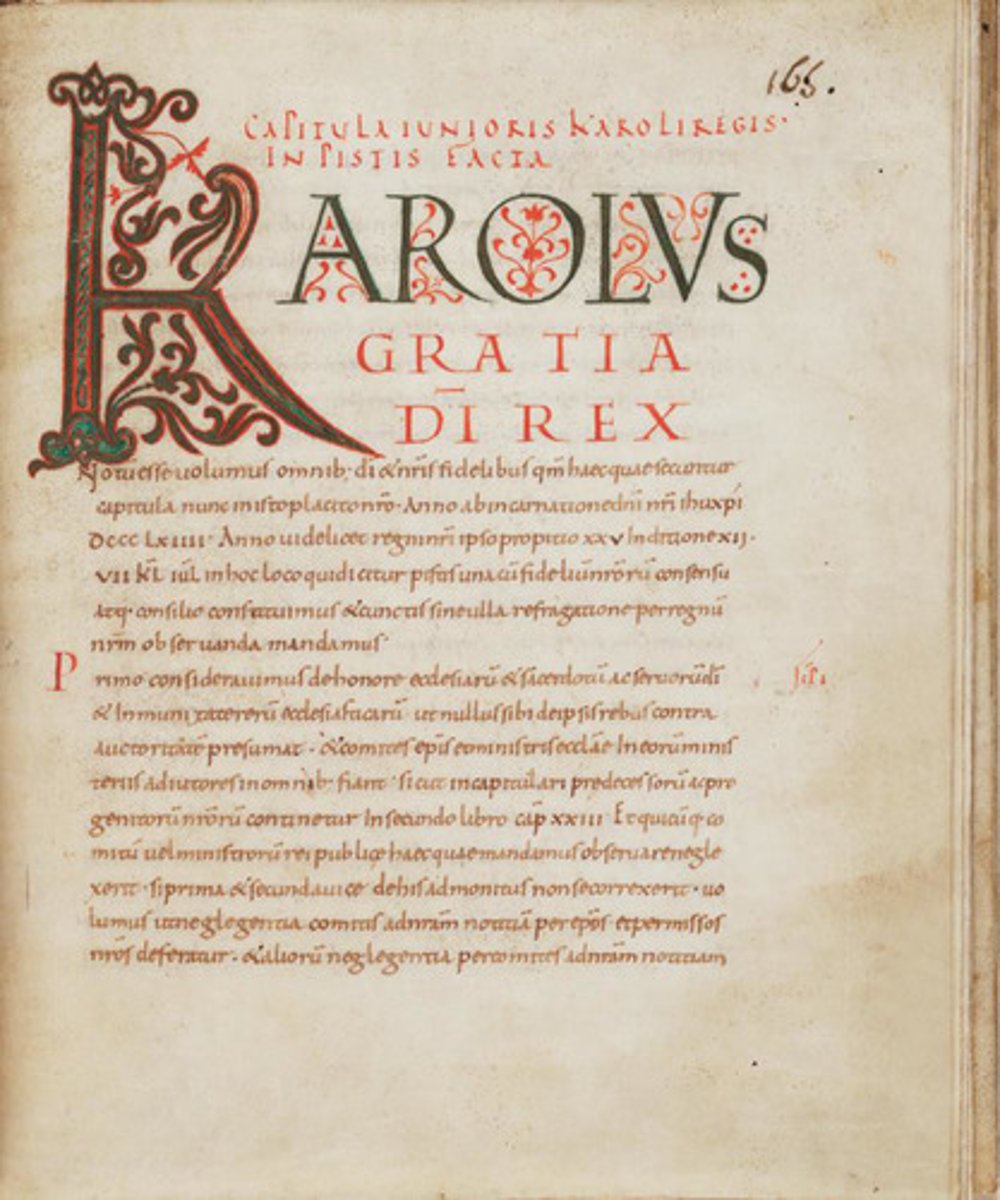 165.
CAPITULA IUNIORIS KAROLI REGIS.
IN PISTIS FACTA
KAROLVS
GRATIA
DĪ REX
Notu esse uolumus omnib; dī & nr̄is fidelibus qm̄ haec quae secuntur
capitula nunc in isto placito nr̄o. Anno ab incarnatione dn̄i nr̄i ihu xp̄i
DCCC LXIIII. Anno uidelicet regni nr̄i ipso propitio xxv Indictione XII.
VII KL̄ IUL̄ in hoc loco qui dicitur pistis una cū fideliū nr̄orū consensu
atq; consilio constituimus & cunctis sine ulla refragatione per regnū
nr̄m obseruanda mandamus
Primo considerauimus de honore ecclesiarū & sacerdotū ac seruorū dī
& Inmunitate rerū ecclesiasticarū ut nullus sibi de ipsis rebus contra
auctoritatē presumat. & comites ep̄is & ministris ecclāe In eorū minis
teriis adiutores in omnib; fiant. sicut in capitulari predecessorū ac pro
genitorū nr̄orū continetur In secundo libro cap̄ XXIII Et quicūq; co
mitū uel ministrorū rei publicę haec quae mandamus obseruare negle
xerit. si prima & secunda uice de his admonitus non se correxerit. uo
lumus ut neglegentia comitis ad nr̄am notitiā per ep̄os et per missos
nr̄os deferatur. & aliorū neglegentia per comites ad nr̄am notitiam